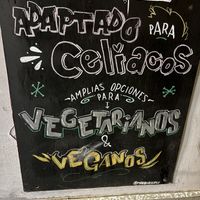 ADAPTADO
PARA
CELÍACOS
AMPLIAS OPCIONES
PARA
VEGETARIANOS
&
VEGANOS